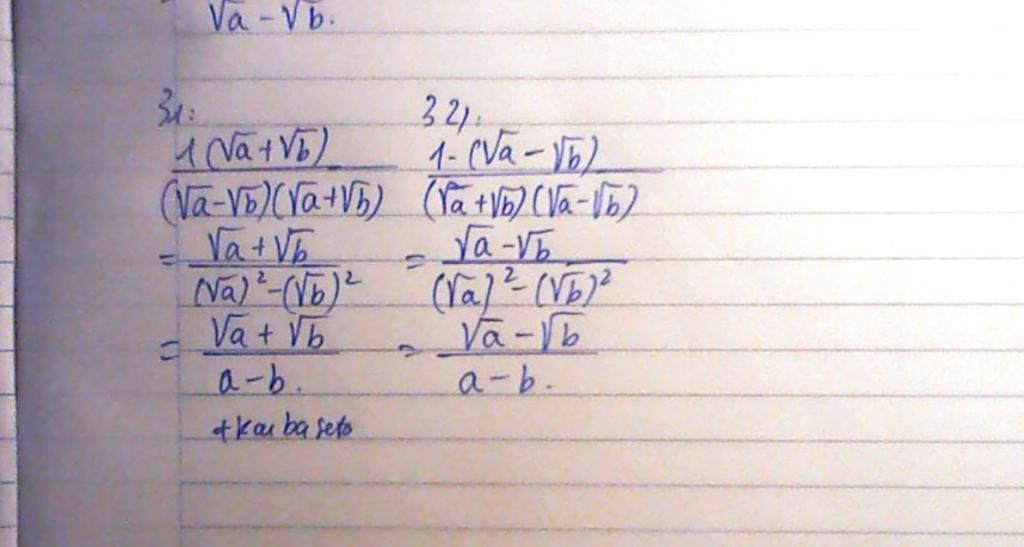 √a - √b.
31:
1 (√a + √b)
(√a - √b)(√a + √b)
= √a + √b
(√a)² - (√b)²
= √a + √b
a - b.
32):
1 - (√a - √b)
(√a + √b)(√a - √b)
= √a - √b
(√a)² - (√b)²
= √a - √b
a - b.